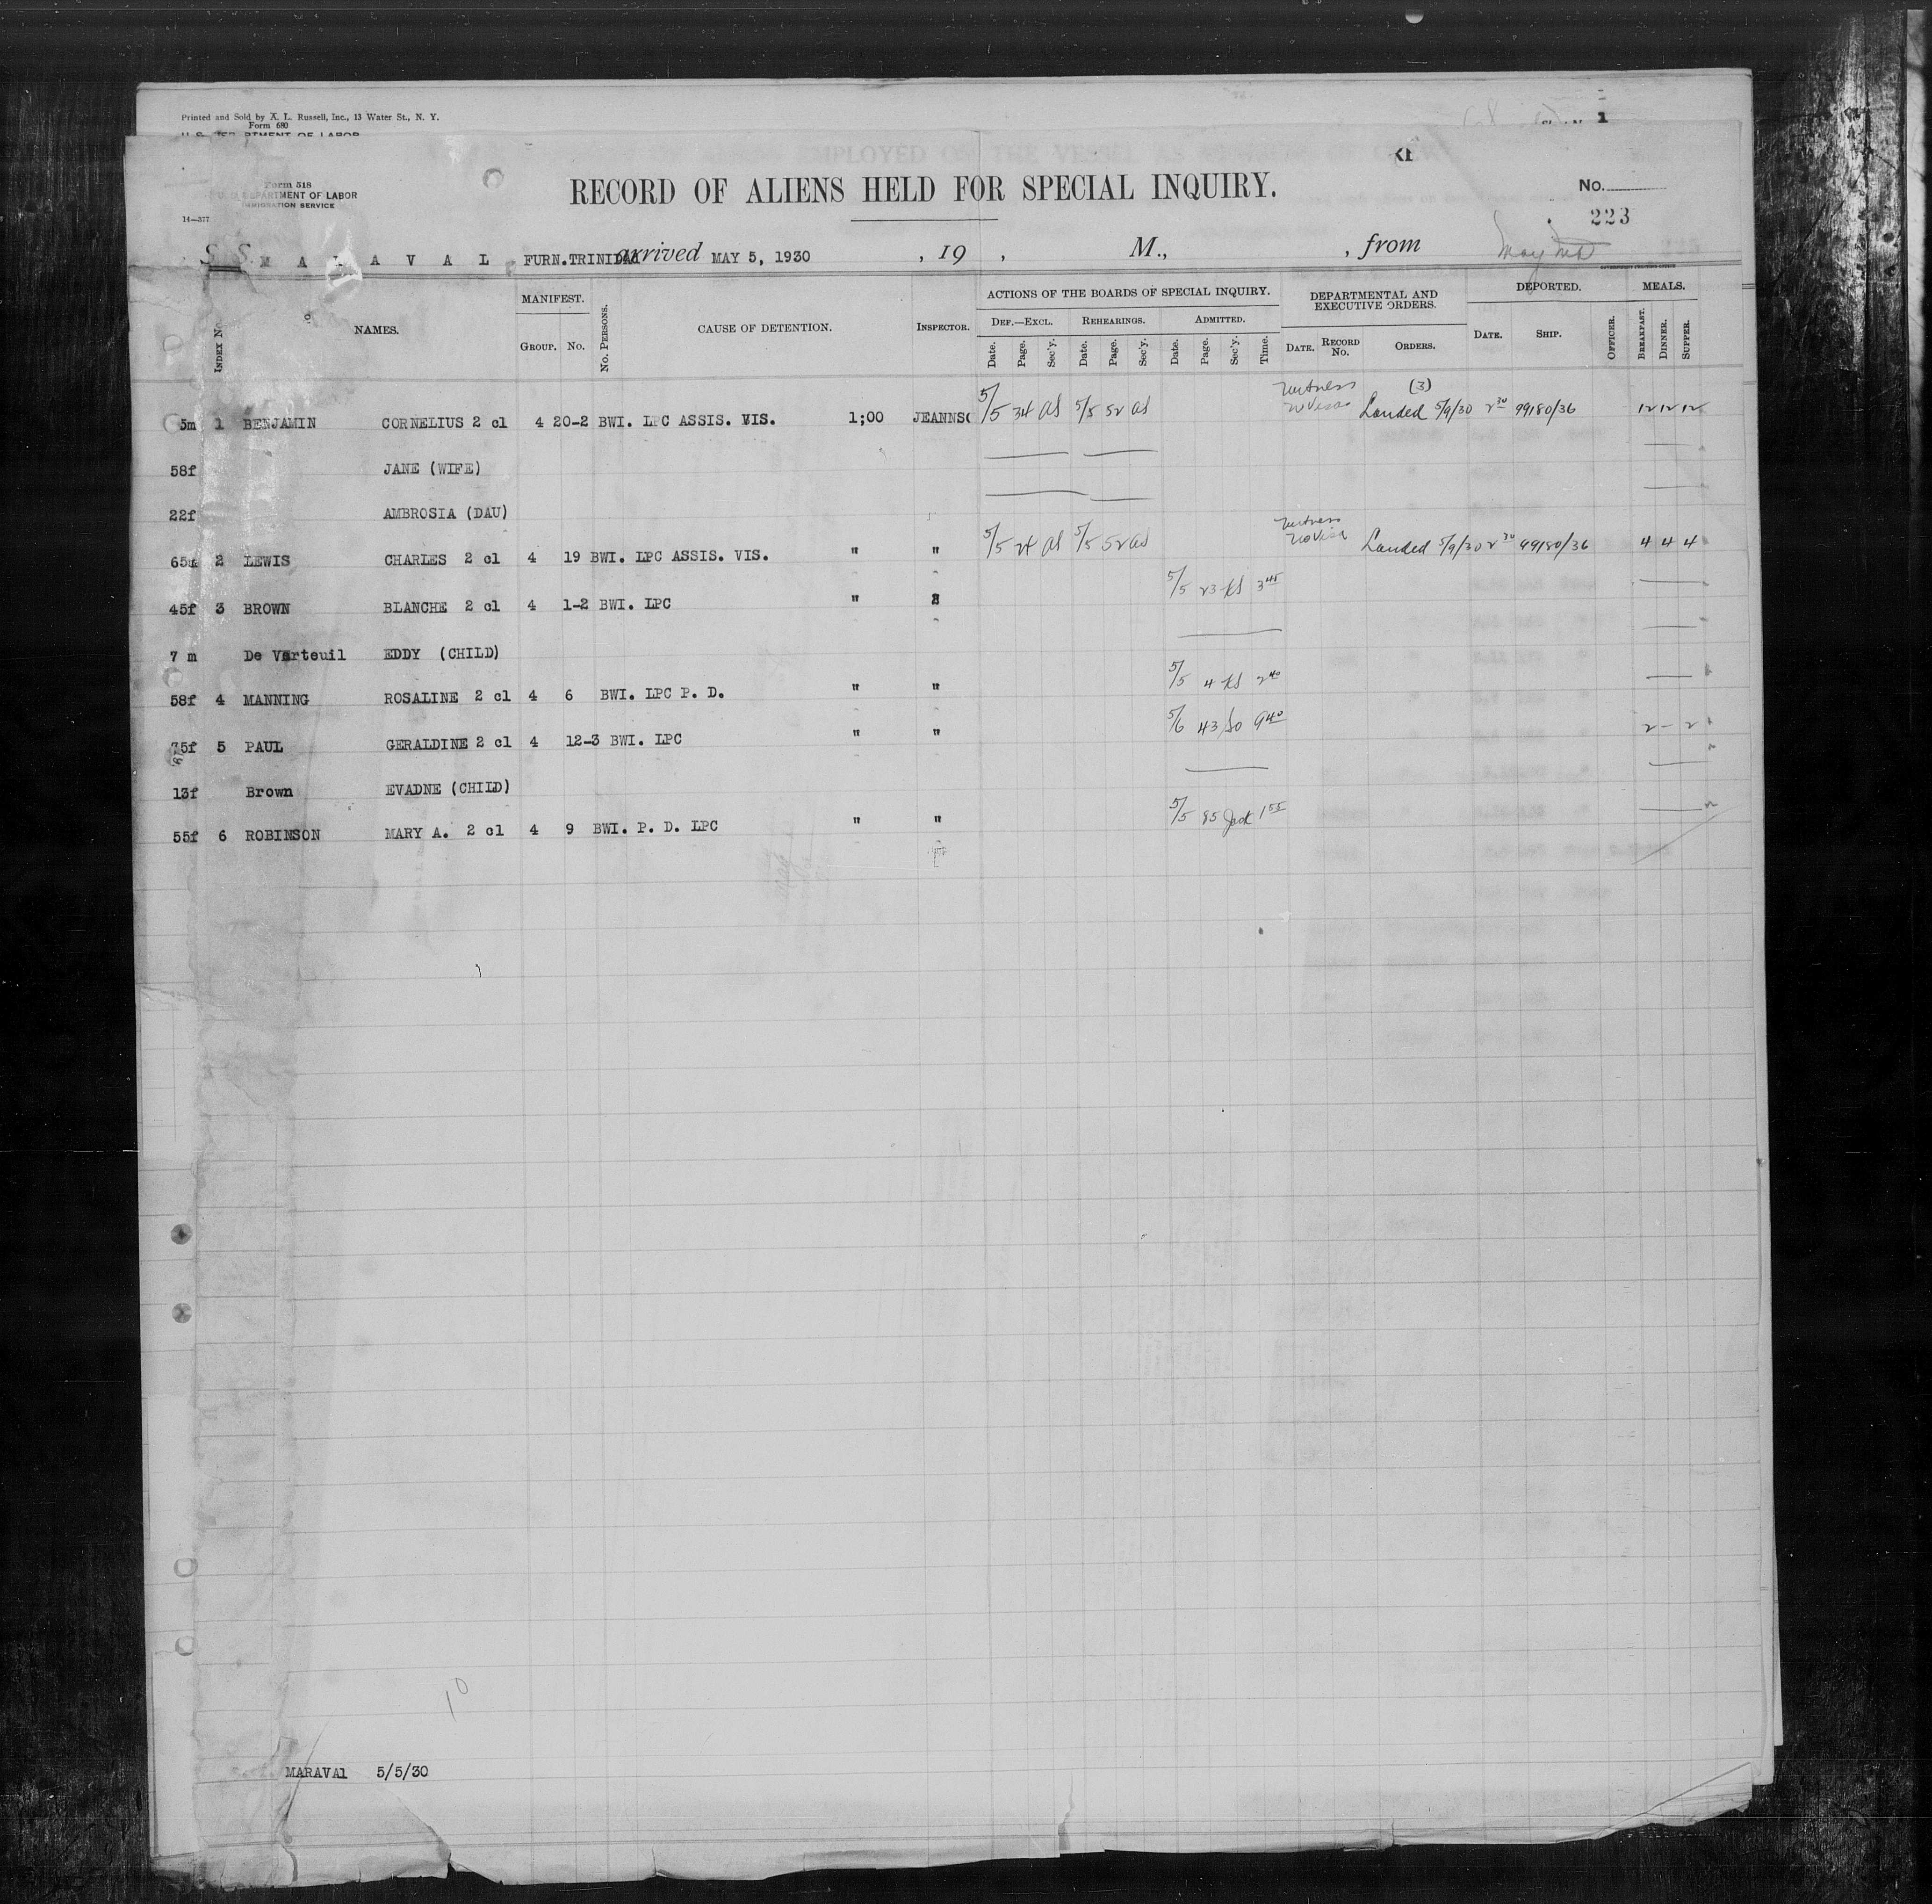 Printed and Sold by A. L. Russell, Inc., 13 Water St., N. Y.
Form 680
1
Form 518
DEPARTMENT OF LABOR
IMMIGRATION SERVICE
14—377
RECORD OF ALIENS HELD FOR SPECIAL INQUIRY.
No.
223
S. S. M A R A V A L , FURN.TRINIDAD arrived MAY 5, 1930 , 19 , M., , from
INDEX No. NAMES. MANIFEST. GROUP. No. No. PERSONS. CAUSE OF DETENTION. INSPECTOR. ACTIONS OF THE BOARDS OF SPECIAL INQUIRY. DEPARTMENTAL AND EXECUTIVE ORDERS. DEPORTED. MEALS.
DEF.—EXCL. REHEARINGS. ADMITTED.
Date. Page. Sec'y. Date. Page. Sec'y. Date. Page. Sec'y. Time. DATE. RECORD No. ORDERS. DATE. SHIP. OFFICER. BREAKFAST. DINNER. SUPPER.
witness (3)
5m 1 BENJAMIN CORNELIUS 2 cl 4 20-2 BWI. LPC ASSIS. VIS. 1;00 JEANNSO 5/5 34 as 5/5 52 as no visa Landed 5/9/30 2 30 99180/36 12 12 12
58f JANE (WIFE)
22f AMBROSIA (DAU)
witness
65m 2 LEWIS CHARLES 2 cl 4 19 BWI. LPC ASSIS. VIS. " " 5/5 24 as 5/5 52 as no visa Landed 5/9/30 2 30 99180/36 4 4 4
45f 3 BROWN BLANCHE 2 cl 4 1-2 BWI. LPC " " 5/5 23 KS 3 45
7 m De Verteuil EDDY (CHILD)
58f 4 MANNING ROSALINE 2 cl 4 6 BWI. LPC P. D. " " 5/5 4 KS 2 40
75f 5 PAUL GERALDINE 2 cl 4 12-3 BWI. LPC " " 5/6 43 so 9 40 2 - 2
13f Brown EVADNE (CHILD)
55f 6 ROBINSON MARY A. 2 cl 4 9 BWI. P. D. LPC " " 5/5 85 1 55
10
MARAVAl 5/5/30